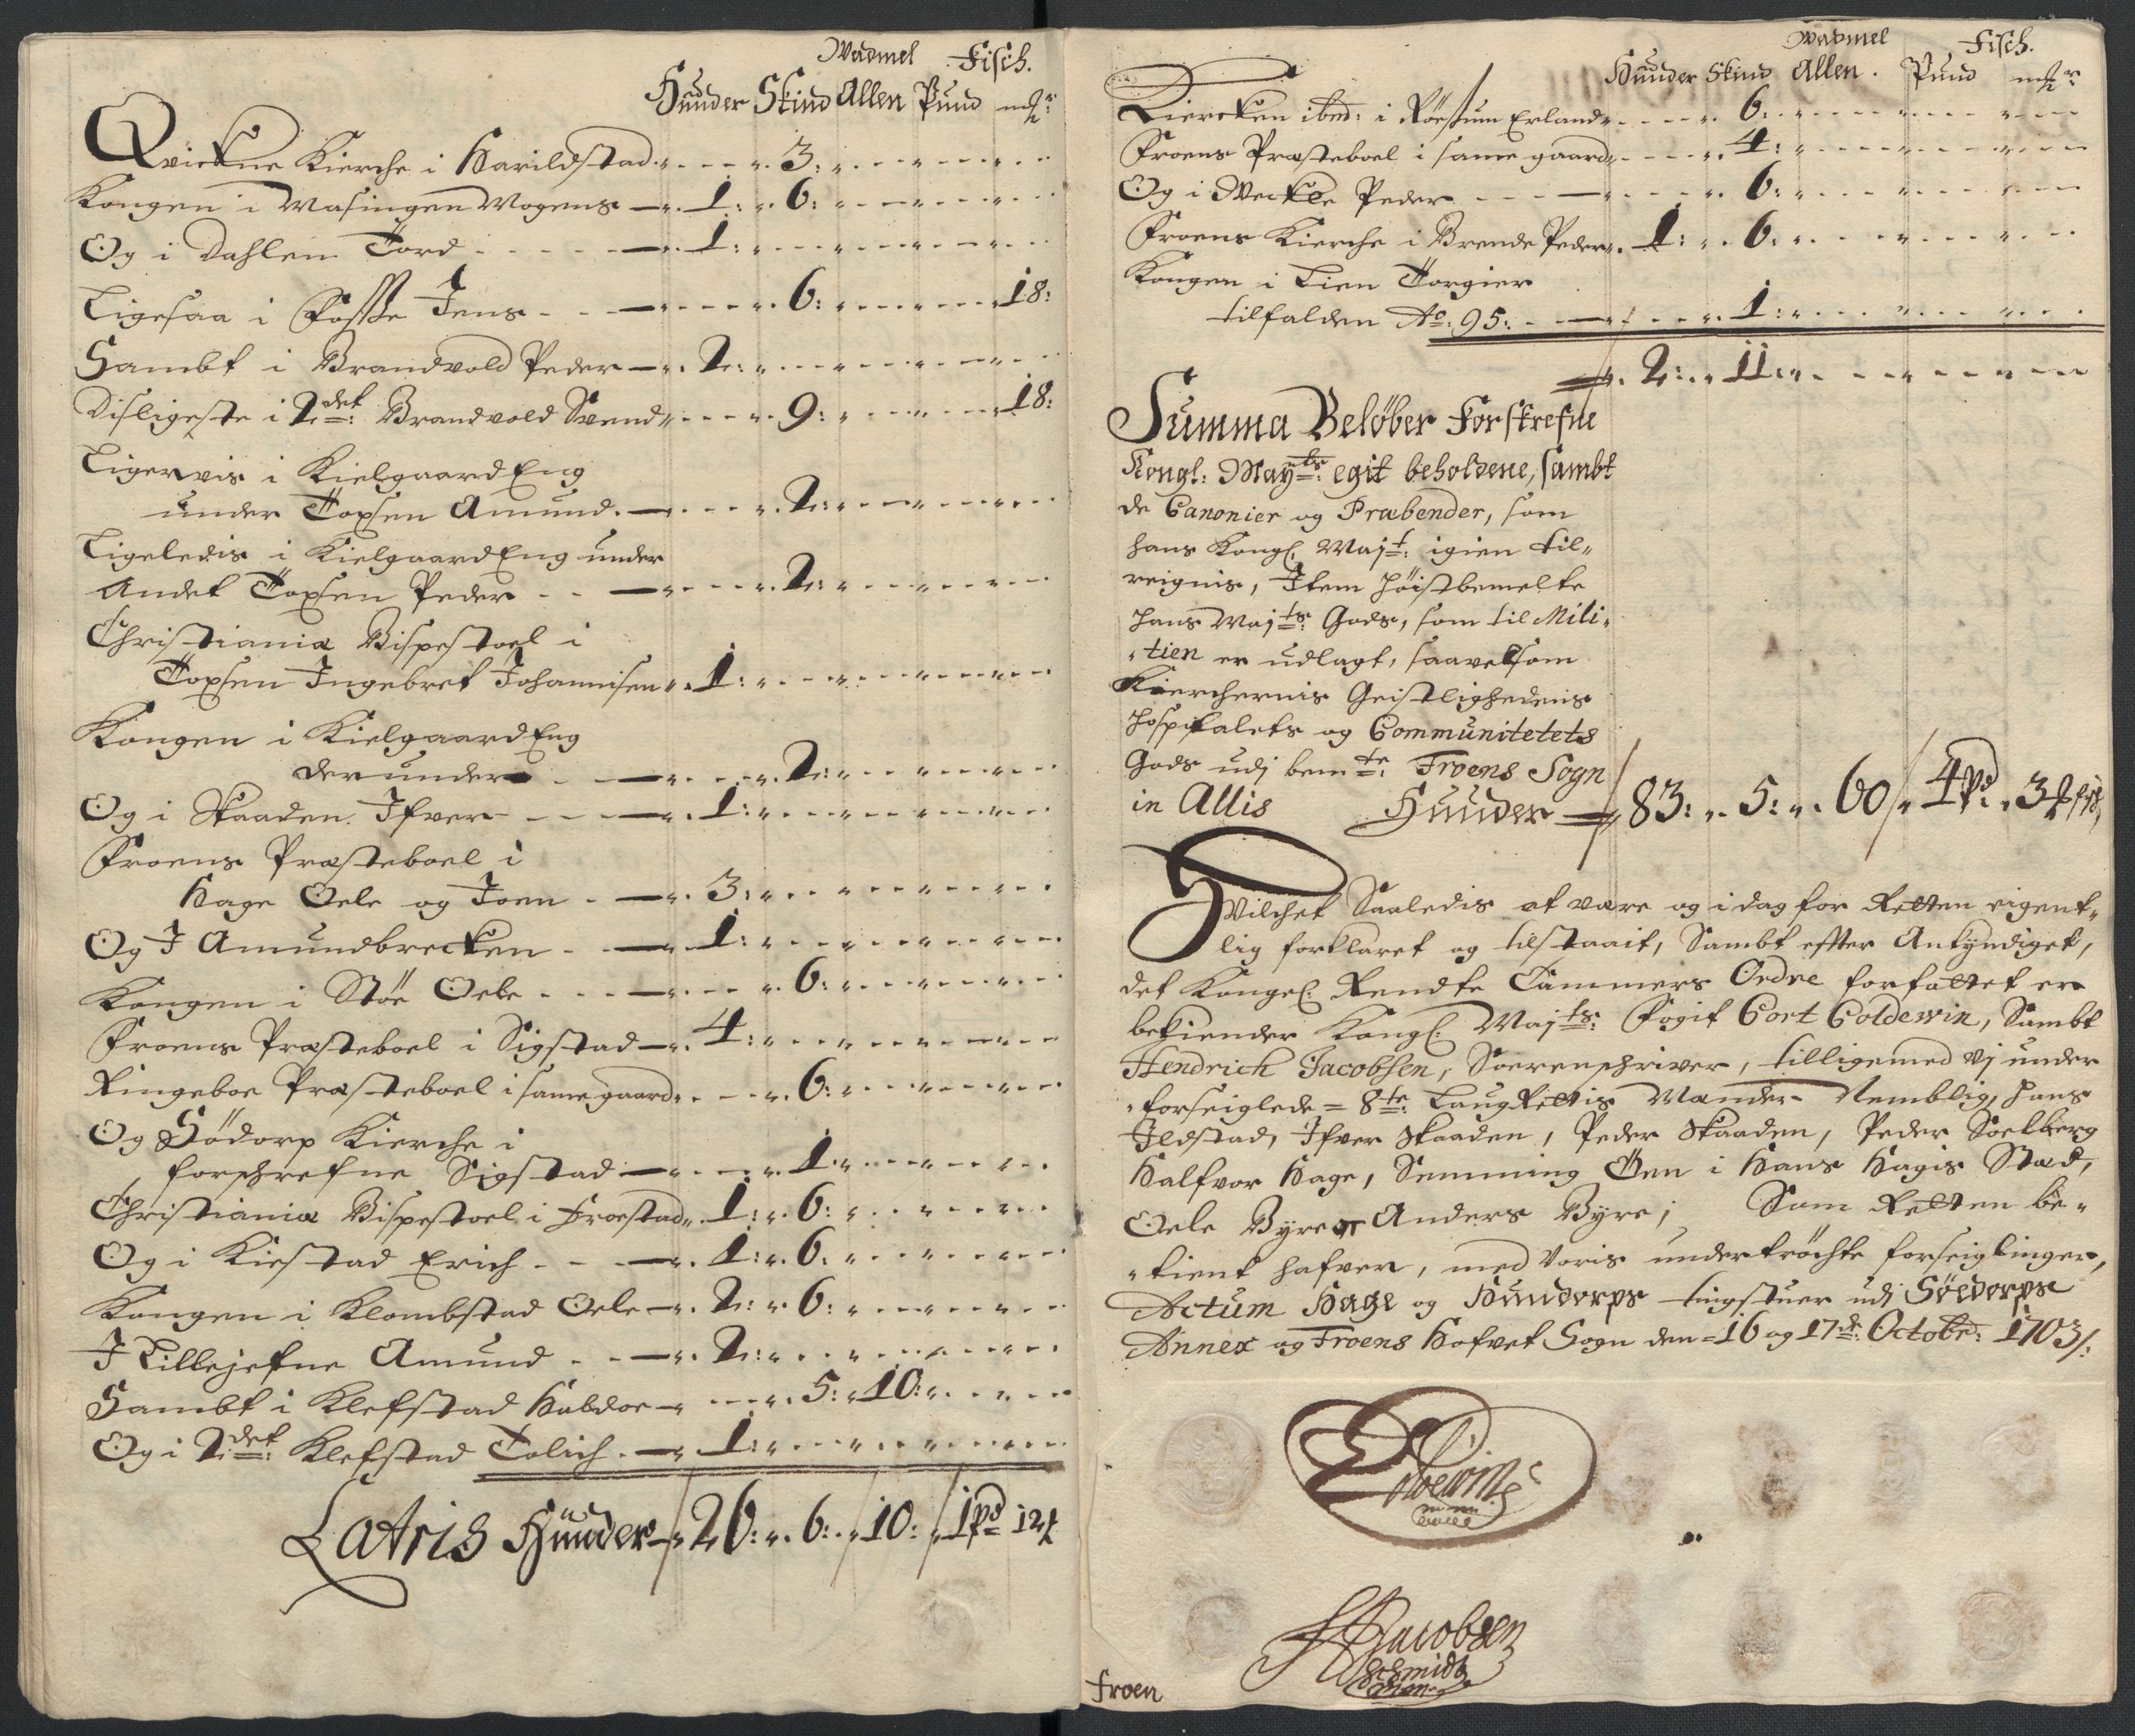 Wadmel Fisch.
Huuder Skind Allen Pund mkr
Qvickne Kierche i Harildstad 3:
Kongen i Wasingen Mogens 1: 6:
Og i Dahlen Tord 1:
Ligesaa i Fosse Jens 6: 18:
Sambt i Brandvold Peder 2:
Disligeste i 2det: Brandvold Svend 9: 18:
Ligervis i Kielgaard Eng
under Toxsen Amund 2:
Ligeledis i Kielgaard Eng under
Andet Toxsen Peder 2:
Christianiæ Bispestoel i
Toxsen Ingebret Johannisen 1:
Kongen i Kielgaard Eng
derunder 2:
Og i Skaaden Ifver 1:
Froens Præsteboel i
Hage Oele og Joen 3:
Og I Amundbrecken 1:
Kongen i Stöe Oele 6:
Froens Præsteboel i Sigstad 4:
Ringeboe Præsteboel i same gaard 6:
Og Södorp Kierche i
forschrefne Sigstad 1:
Christianiæ Bispestoel i Froestad 1: 6:
Og i Kiestad Erich 1: 6:
Kongen i Klombstad Oele 2: 6:
I Lillejefne Amund 2:
Sambt i Klefstad Haldoe 5: 10:
Og i 2det: Klefstad Tolich 1:
Latris Huuder 26: 6: 10: 1pd 12
Wadmel Fisch.
Huuder Skind Allen. Pund mkr
Kiercken ibid: i Röestum Erland 6:
Froens Præsteboel i same gaard 4:
Og i Weckle Peder 6:
Froens Kierche i Brende Peder 1: 6:
Kongen i Lien Torgier
tilfalden Ao: 95: 1:
2: 11:
Summa Beløber Forskrefne
Kongl: Mayts: egit beholdene, sambt
de Canonier og Præbender, som
hans Kongl: Majt: igien til„
reignis, Item Höistbemelte
Hans Majts: Gods, som til Mili„
„tien er udlagt, saavelsom
Kierchernis Geistlighedens
Hospitalets og Communitetets
Gods udj bemte: Froens Sogn
in Allis Huuder 83: 5: 60 4pd 3
Hvilchet Saaledis at være og i dag for Retten eigent„
lig forklaret og tilstaait, Sambt effter Ankyndiget,
det Kongel: Rendte Cammers Ordre forfattet er
bekiender Kongl: Majts: Fogit Cort Coldewin, Sambt
Hendrich Jacobsen, Soerenschriver, tilligemed vj under
„forseiglede = 8te: LaugRettis Mænder Nemblig, Hans
Ildstad, Ifver Skaaden, Peder Skaaden, Peder Soelberg
Halfvor Hage, Semming Öen i Hans Hagis Stæd,
Oele Byre og Anders Byre; Som Retten be„
„tient hafver, med voris undertröchte forseiglinger,
Actum Hage og Hundorps tingstuer udj Söedorps
Annex og Froens Hofvet Sogn den = 16 og 17de: Octobr: 1703/.
Coldewin
HJacobsen
Schmidt
froen